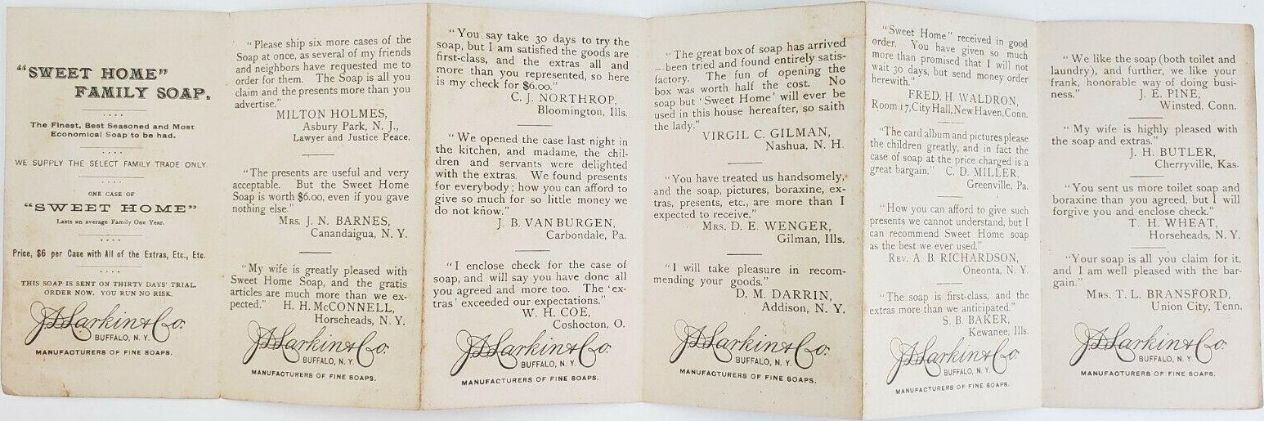 "SWEET HOME"
FAMILY SOAP.
The Finest, Best Seasoned and Most
Economical Soap to be had.
WE SUPPLY THE SELECT FAMILY TRADE ONLY.
ONE CASE OF
"SWEET HOME"
Lasts an average Family One Year.
Price, $6 per Case with All of the Extras, Etc., Etc.
THIS SOAP IS SENT ON THIRTY DAYS' TRIAL.
ORDER NOW. YOU RUN NO RISK.
J. D. Larkin & Co.
BUFFALO, N. Y.
MANUFACTURERS OF FINE SOAPS.
"Please ship six more cases of the
Soap at once, as several of my friends
and neighbors have requested me to
order for them. The Soap is all you
claim and the presents more than you
advertise."
MILTON HOLMES,
Asbury Park, N. J.,
Lawyer and Justice Peace.
"The presents are useful and very
acceptable. But the Sweet Home
Soap is worth $6.00, even if you gave
nothing else."
MRS. J. N. BARNES,
Canandaigua, N. Y.
"My wife is greatly pleased with
Sweet Home Soap, and the gratis
articles are much more than we ex-
pected." H. H. McCONNELL,
Horseheads, N. Y.
J. D. Larkin & Co.
BUFFALO, N. Y.
MANUFACTURERS OF FINE SOAPS.
"You say take 30 days to try the
soap, but I am satisfied the goods are
first-class, and the extras all and
more than you represented, so here
is my check for $6.00."
C. J. NORTHROP,
Bloomington, Ills.
"We opened the case last night in
the kitchen, and madame, the chil-
dren and servants were delighted
with the extras. We found presents
for everybody; how you can afford to
give so much for so little money we
do not know."
J. B. VAN BURGEN,
Carbondale, Pa.
"I enclose check for the case of
soap, and will say you have done all
you agreed and more too. The 'ex-
tras' exceeded our expectations."
W. H. COE,
Coshocton, O.
J. D. Larkin & Co.
BUFFALO, N. Y.
MANUFACTURERS OF FINE SOAPS.
"The great box of soap has arrived
—been tried and found entirely satis-
factory. The fun of opening the
box was worth half the cost. No
soap but 'Sweet Home' will ever be
used in this house hereafter, so saith
the lady."
VIRGIL C. GILMAN,
Nashua, N. H.
"You have treated us handsomely,
and the soap, pictures, boraxine, ex-
tras, presents, etc., are more than I
expected to receive."
MRS. D. E. WENGER,
Gilman, Ills.
"I will take pleasure in recom-
mending your goods."
D. M. DARRIN,
Addison, N. Y.
J. D. Larkin & Co.
BUFFALO, N. Y.
MANUFACTURERS OF FINE SOAPS.
"Sweet Home" received in good
order. You have given so much
more than promised that I will not
wait 30 days, but send money order
herewith."
FRED. H. WALDRON,
Room 17, City Hall, New Haven, Conn.
"The card album and pictures please
the children greatly, and in fact the
case of soap at the price charged is a
great bargain." C. D. MILLER,
Greenville, Pa.
"How you can afford to give such
presents we cannot understand, but I
can recommend Sweet Home soap
as the best we ever used."
REV. A. B. RICHARDSON,
Oneonta, N. Y.
"The soap is first-class, and the
extras more than we anticipated."
S. B. BAKER,
Kewanee, Ills.
J. D. Larkin & Co.
BUFFALO, N. Y.
MANUFACTURERS OF FINE SOAPS.
"We like the soap (both toilet and
laundry), and further, we like your
frank, honorable way of doing busi-
ness." J. E. PINE,
Winsted, Conn.
"My wife is highly pleased with
the soap and extras."
J. H. BUTLER,
Cherryville, Kas.
"You sent us more toilet soap and
boraxine than you agreed, but I will
forgive you and enclose check."
T. H. WHEAT,
Horseheads, N. Y.
"Your soap is all you claim for it,
and I am well pleased with the bar-
gain."
MRS. T. L. BRANSFORD,
Union City, Tenn.
J. D. Larkin & Co.
BUFFALO, N. Y.
MANUFACTURERS OF FINE SOAPS.